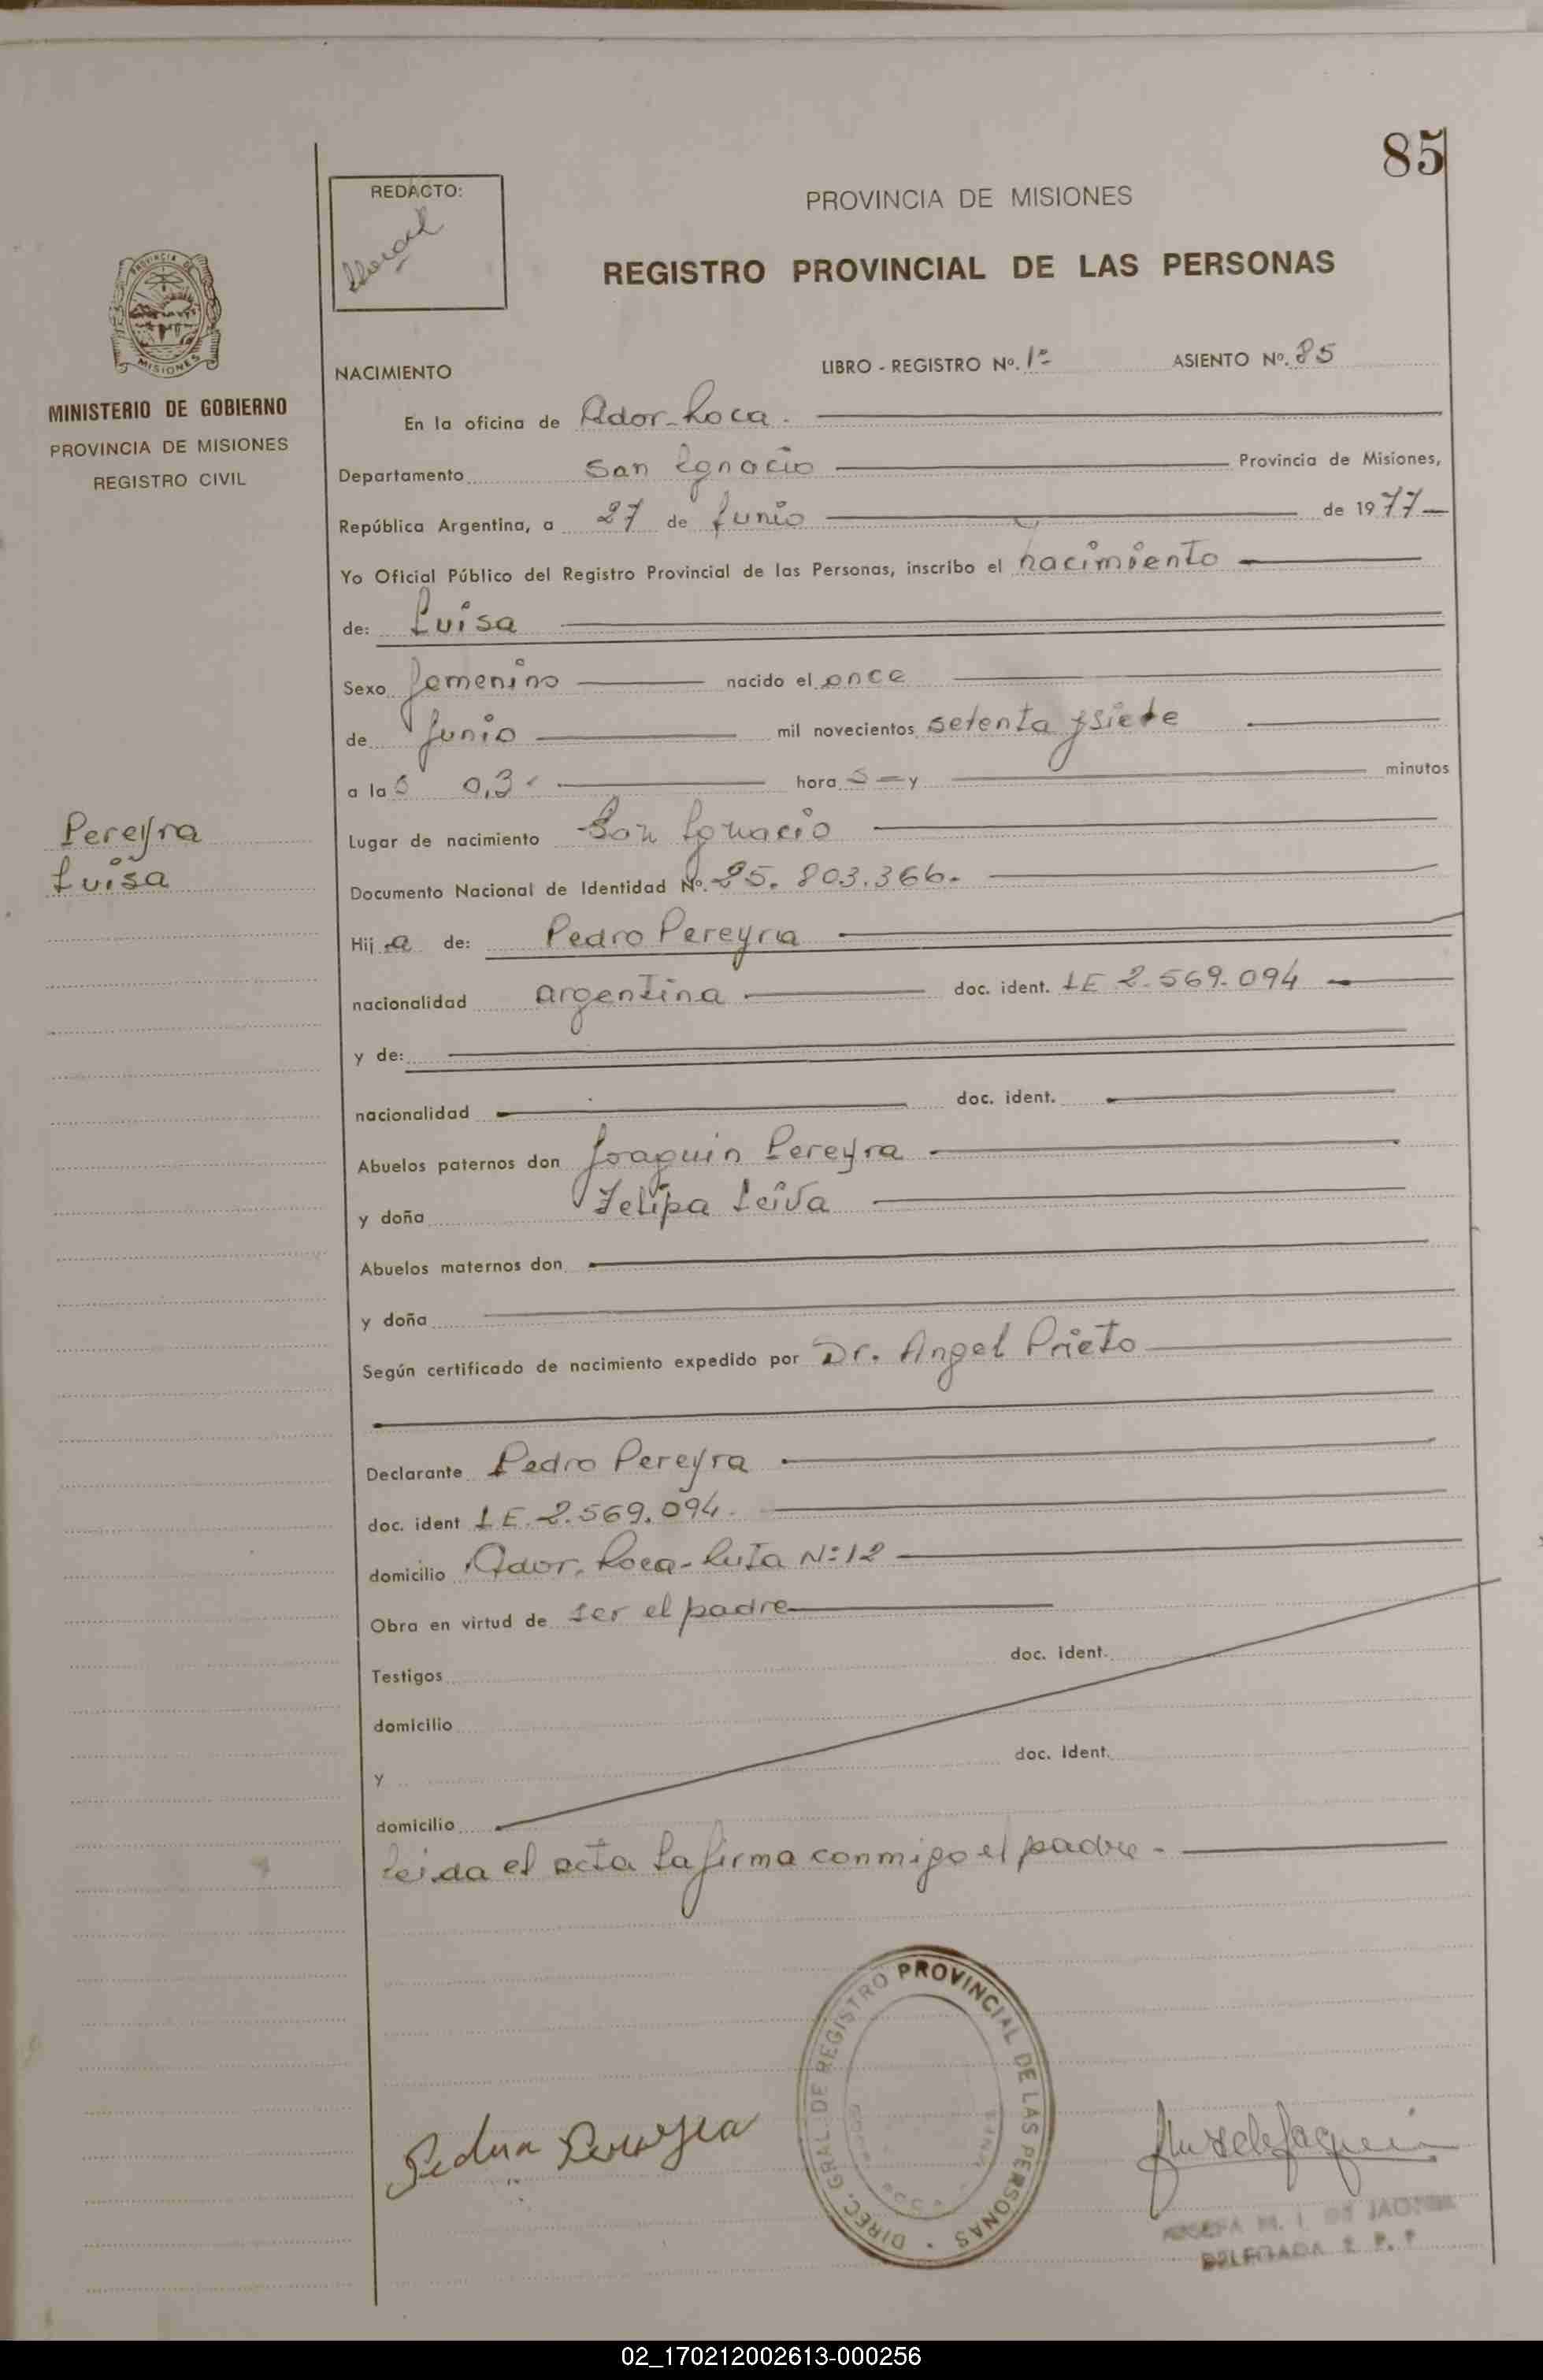 85
REDACTO:
PROVINCIA DE MISIONES
REGISTRO PROVINCIAL DE LAS PERSONAS
PROVINCIA DE MISIONES
MINISTERIO DE GOBIERNO
PROVINCIA DE MISIONES
REGISTRO CIVIL
Pereyra
Luisa
NACIMIENTO LIBRO - REGISTRO Nº. 1º ASIENTO Nº. 85
En la oficina de Gdor. Roca.
Departamento San Ignacio Provincia de Misiones,
República Argentina, a 27 de Junio de 1977
Yo Oficial Público del Registro Provincial de las Personas, inscribo el nacimiento
de: Luisa
Sexo femenino nacido el once
de Junio mil novecientos setenta y siete
a las 0,3 horas y minutos
Lugar de nacimiento San Ignacio
Documento Nacional de Identidad Nº. 25.803.366.
Hija de: Pedro Pereyra
nacionalidad argentina doc. ident. LE 2.569.094
y de:
nacionalidad doc. ident.
Abuelos paternos don Joaquin Pereyra
y doña Felipa Leiva
Abuelos maternos don
y doña
Según certificado de nacimiento expedido por Dr. Angel Prieto
Declarante Pedro Pereyra
doc. ident LE 2.569.094.
domicilio Gdor. Roca - Ruta Nº 12
Obra en virtud de ser el padre
Testigos doc. ident.
domicilio
y doc. ident.
domicilio
leida el acta la firma conmigo el padre.
DIREC. GRAL. DE REGISTRO PROVINCIAL DE LAS PERSONAS
M. I. DE
DELEGADA
02_170212002613-000256